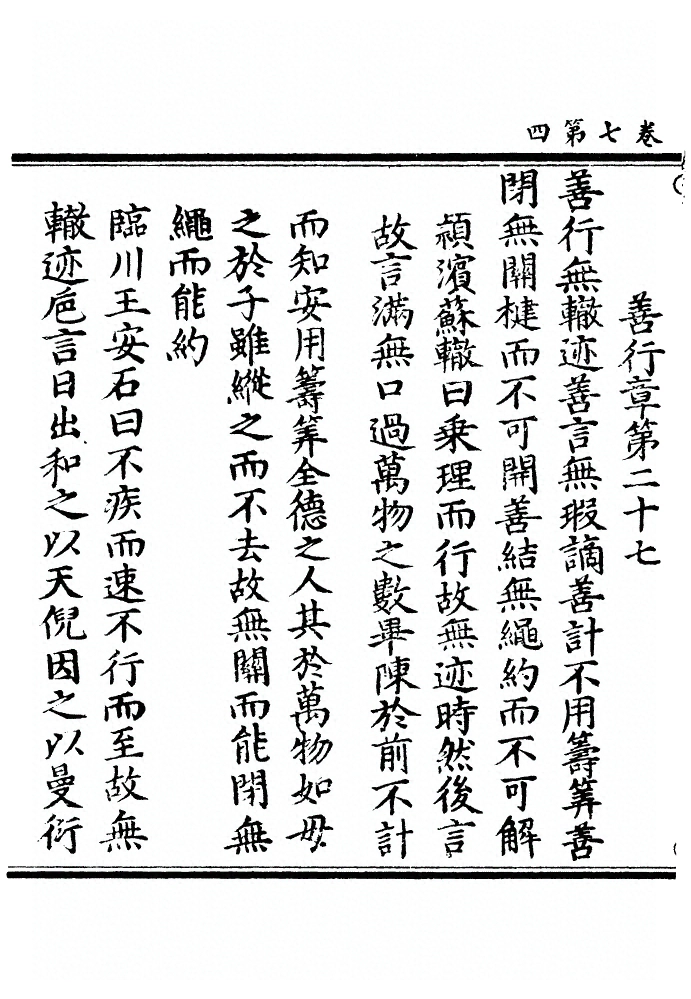 卷七第四
善行章第二十七
善行無轍迹善言無瑕謫善計不用籌筭善
閉無關楗而不可開善結無繩約而不可解
頴濱蘇轍曰乗理而行故無迹時然後言
故言滿無口過萬物之數畢陳於前不計
而知安用籌筭全德之人其於萬物如毋
之於子雖縱之而不去故無關而能閉無
繩而能約
臨川王安石曰不疾而速不行而至故無
轍迹巵言日出和之以天倪因之以曼衍